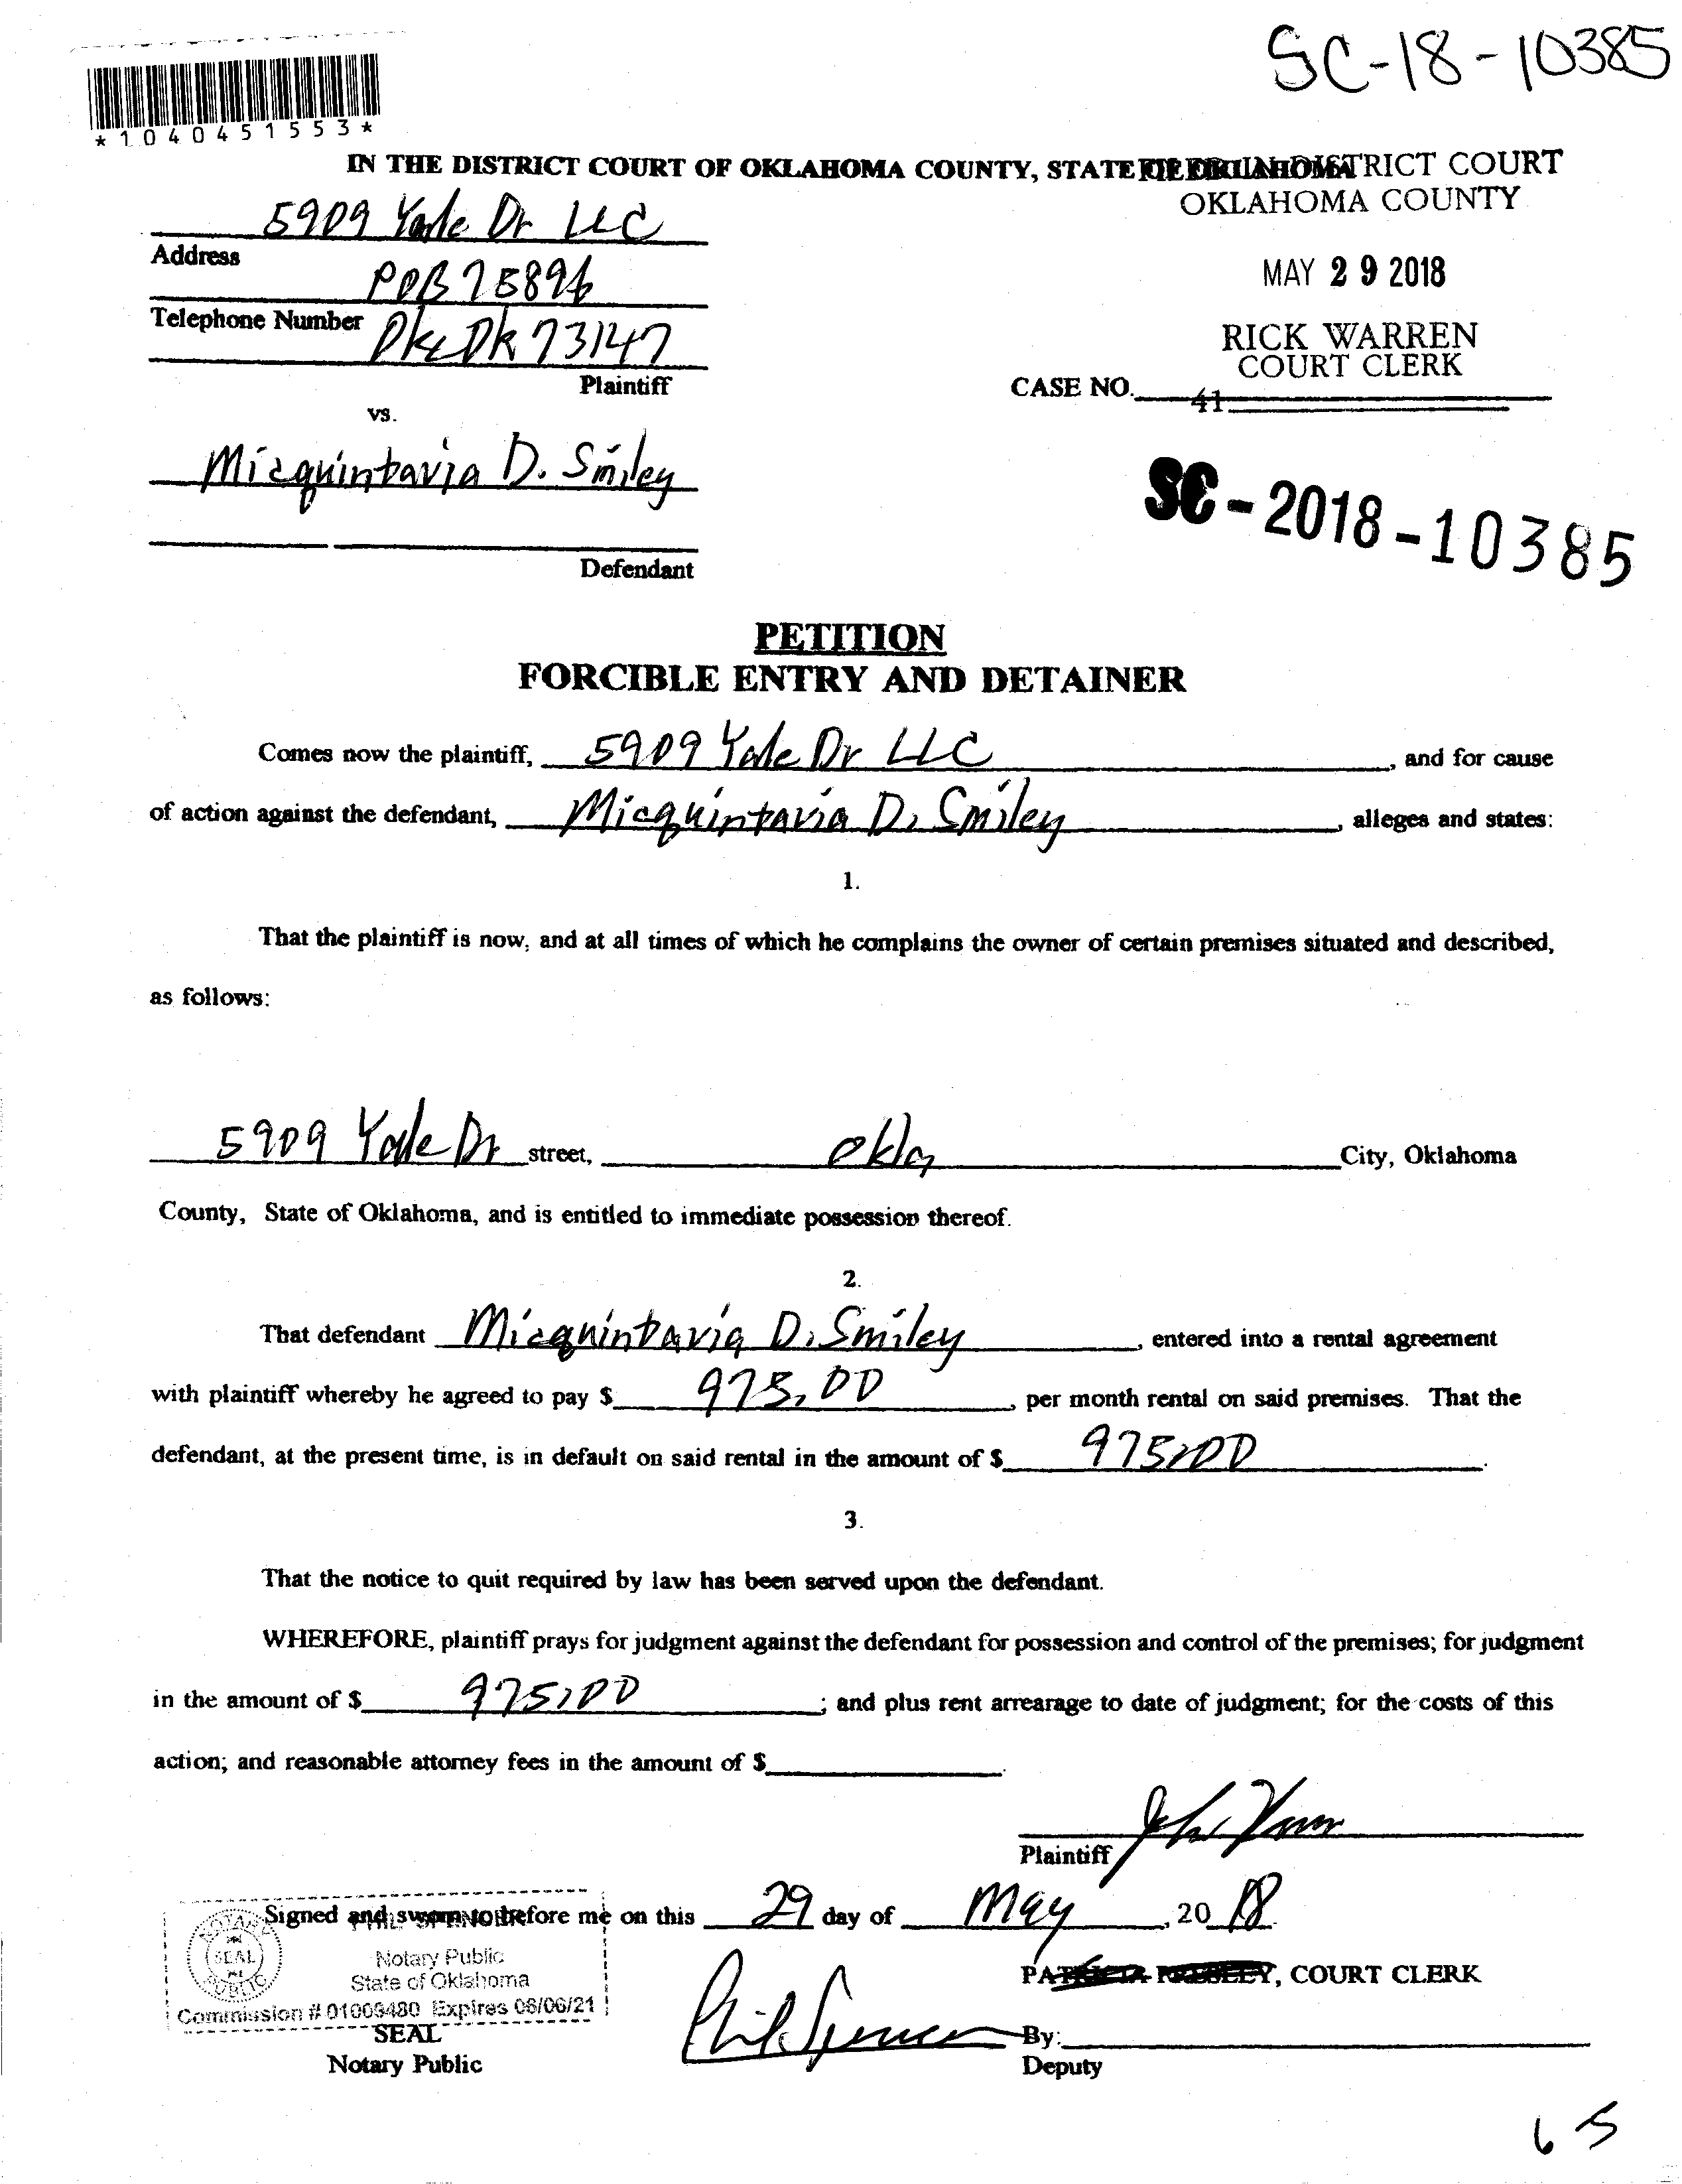 SC-18-10385
*1040451553*
IN THE DISTRICT COURT OF OKLAHOMA COUNTY, STATE OF OKLAHOMA
FILED IN DISTRICT COURT
OKLAHOMA COUNTY
5909 Yale Dr LLC
Address
MAY 29 2018
POB 75896
Telephone Number
RICK WARREN
COURT CLERK
Okc Ok 73147
Plaintiff
CASE NO. 41
vs.
Micquintavia D. Smiley
SC-2018-10385
Defendant
PETITION
FORCIBLE ENTRY AND DETAINER
Comes now the plaintiff, 5909 Yale Dr LLC, and for cause
of action against the defendant, Micquintavia D. Smiley, alleges and states:
1.
That the plaintiff is now, and at all times of which he complains the owner of certain premises situated and described,
as follows:
5909 Yale Dr street, Okla City, Oklahoma
County, State of Oklahoma, and is entitled to immediate possession thereof.
2.
That defendant Micquintavia D. Smiley, entered into a rental agreement
with plaintiff whereby he agreed to pay $ 975.00, per month rental on said premises. That the
defendant, at the present time, is in default on said rental in the amount of $ 975.00.
3.
That the notice to quit required by law has been served upon the defendant.
WHEREFORE, plaintiff prays for judgment against the defendant for possession and control of the premises; for judgment
in the amount of $ 975.00; and plus rent arrearage to date of judgment; for the costs of this
action; and reasonable attorney fees in the amount of $
Plaintiff
Signed and sworn to before me on this 29 day of May, 20 18.
SEAL
Notary Public
State of Oklahoma
Commission # 01009480 Expires 06/06/21
COURT CLERK
Phil Spencer
By:
SEAL
Notary Public
Deputy
65